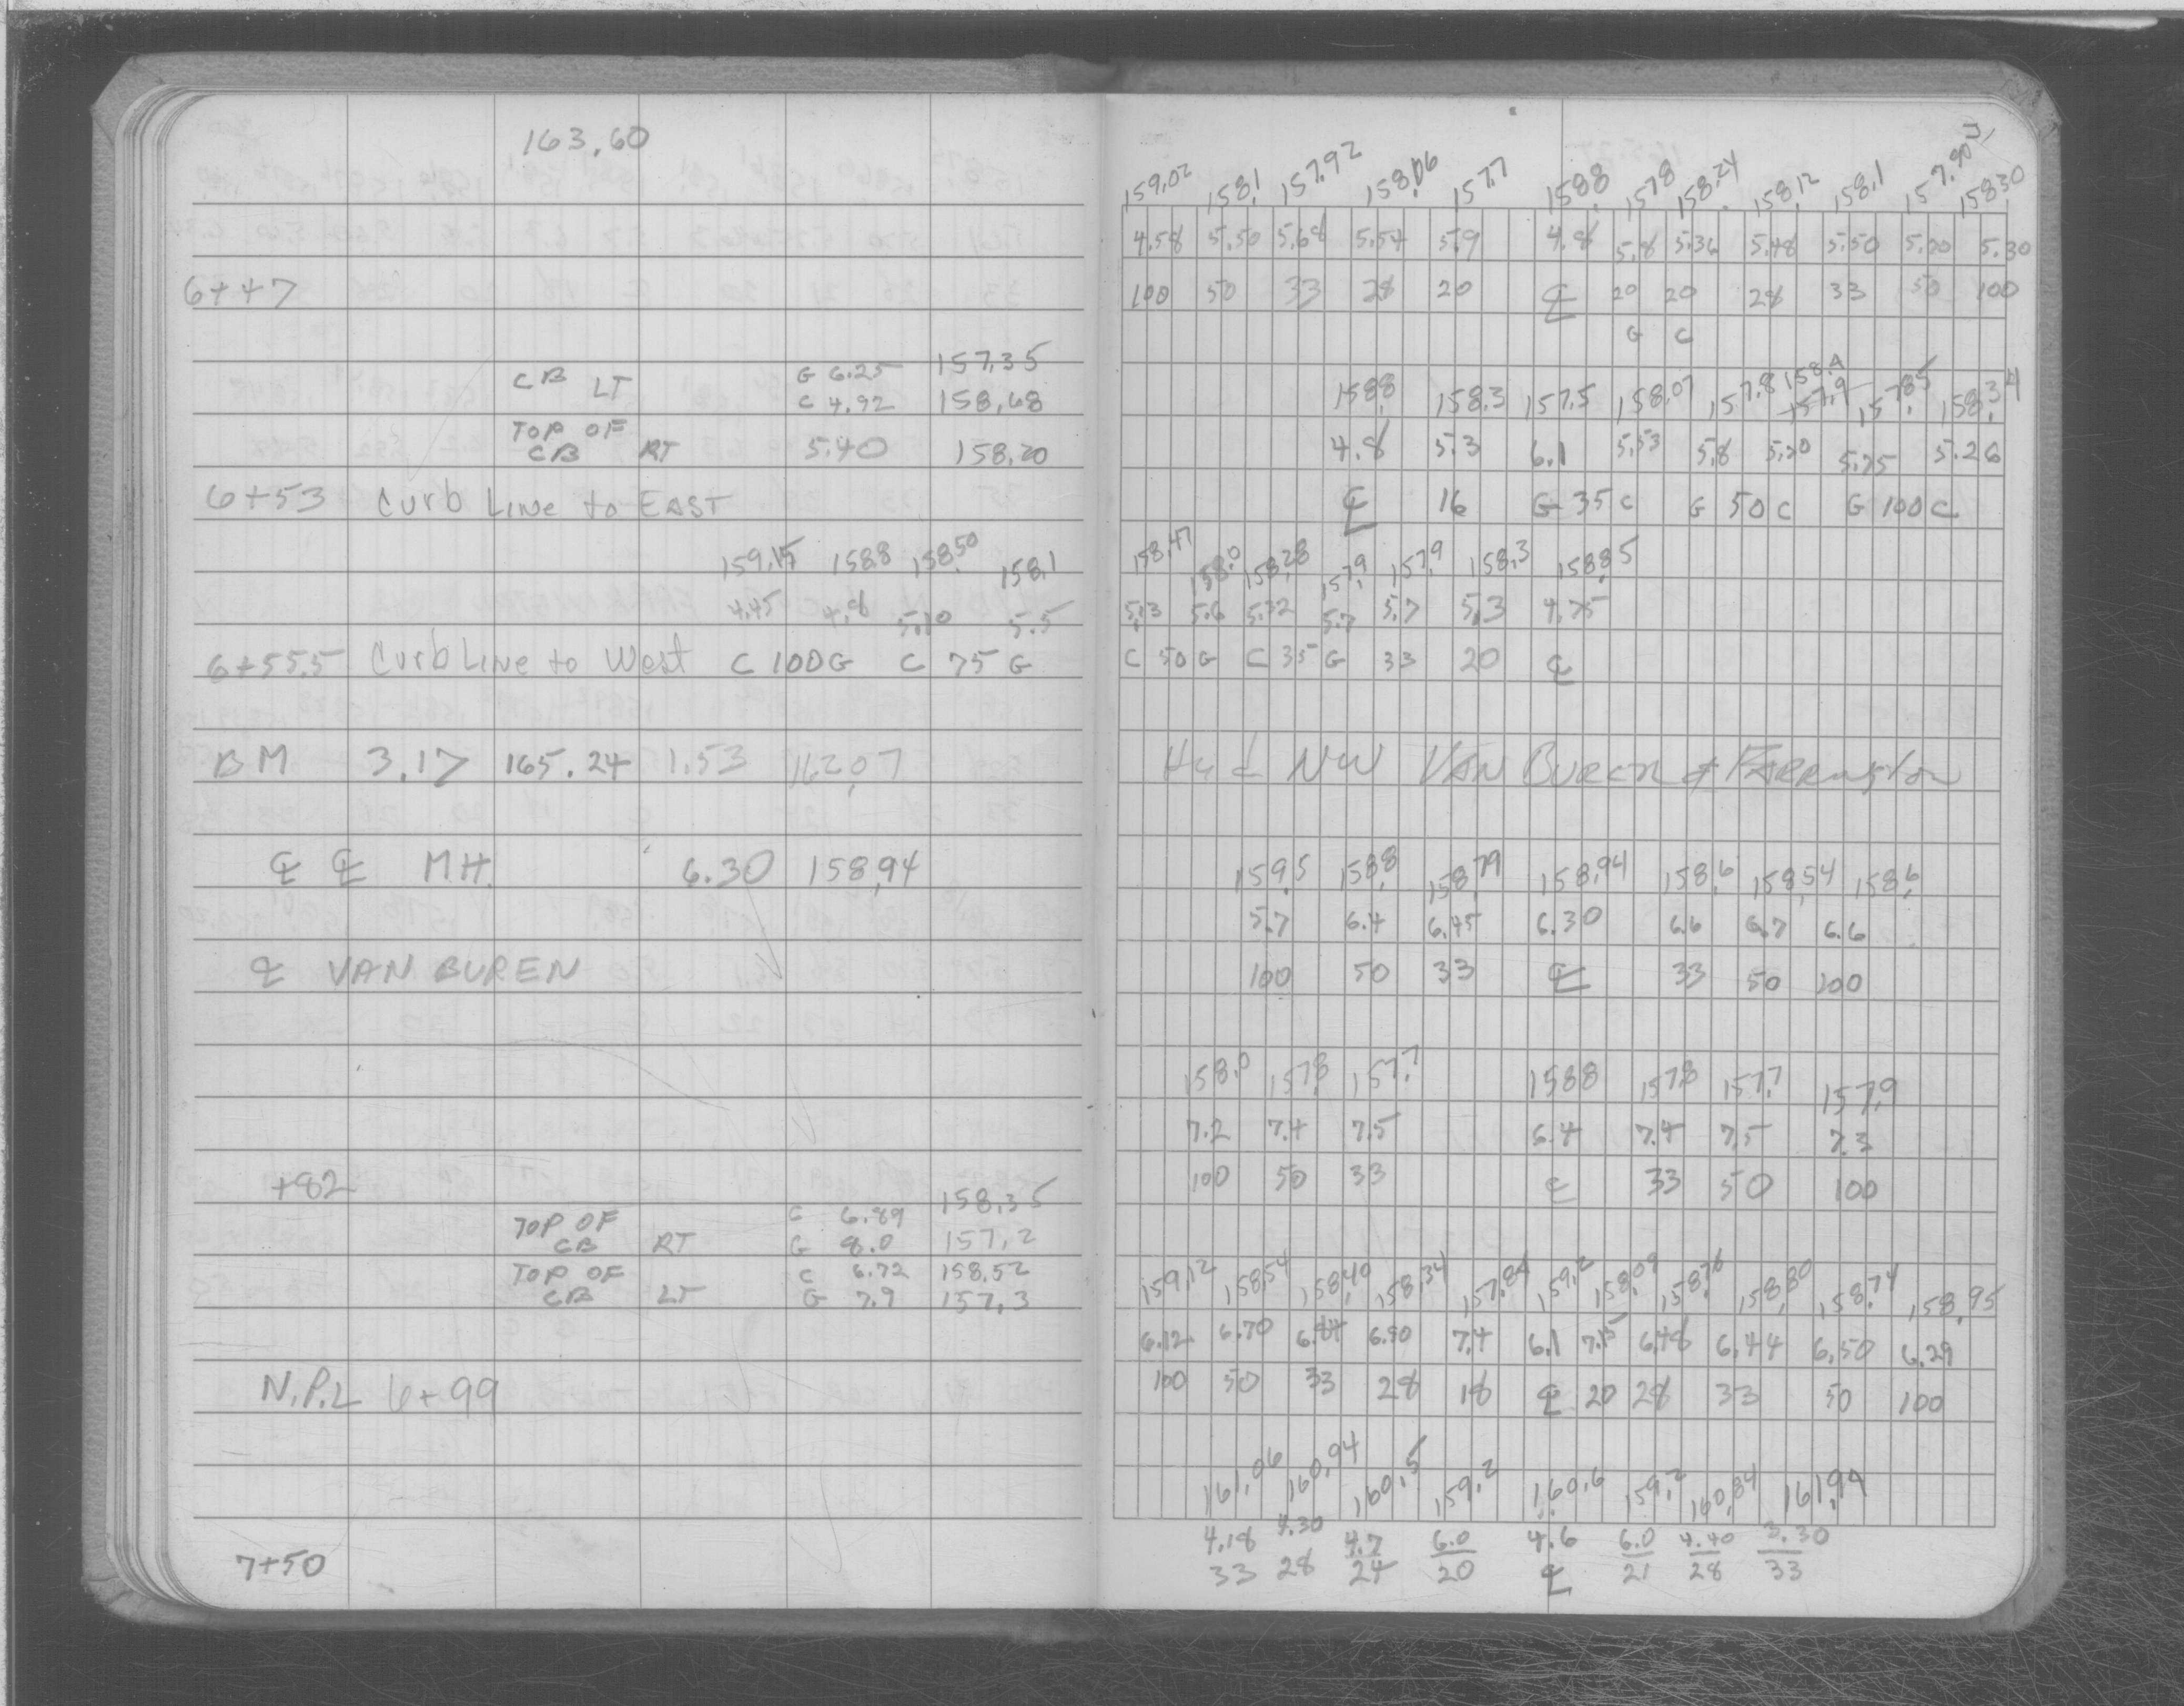 163.60
6+47
CB LT G 6.25 157.35
C 4.92 158.68
TOP OF
CB RT 5.40 158.20
6+53 Curb Line to EAST
159.15 158.8 158.50 158.1
4.45 4.8 5.10 5.5
6+55.5 Curb Line to West C 100 G C 75 G
BM 3.17 165.24 1.53 162.07
℄ ℄ M.H. 6.30 158.94
℄ VAN BUREN
+82
158.35
TOP OF C 6.89
CB RT G 8.0 157.2
TOP OF C 6.72 158.52
CB LT G 7.9 157.3
N.P.L 6+99
7+50
3,
159.02 158.1 157.92 158.06 157.7 158.8 157.8 158.24 158.12 158.1 157.90 158.30
4.58 5.50 5.68 5.54 5.9 4.8 5.8 5.36 5.48 5.50 5.30
100 50 33 28 20 ℄ 20 20 28 33 50 100
G C
158.4
158.8 158.3 157.5 158.07 157.8 157.9 157.85 158.34
4.8 5.3 6.1 5.53 5.8 5.20 5.75 5.26
℄ 16 G 35 C G 50 C G 100 C
158.47 158.0 158.28 157.9 157.9 158.3 158.85
5.13 5.6 5.32 5.7 5.7 5.3 4.75
C 50 G C 35 G 33 20 ℄
Hyd NW VAN BUREN & FARRINGTON
159.5 158.8 158.79 158.94 158.6 158.54 158.6
5.7 6.4 6.45 6.30 6.6 6.7 6.6
100 50 33 ℄ 33 50 100
158.0 157.8 157.7 158.8 157.8 157.7 157.9
7.2 7.4 7.5 6.4 7.4 7.5 7.3
100 50 33 ℄ 33 50 100
159.12 158.54 158.40 158.34 157.84 159.2 158.09 158.76 158.80 158.74 158.95
6.12 6.70 6.84 6.90 7.4 6.1 7.15 6.48 6.44 6.50 6.29
100 50 33 28 18 ℄ 20 28 33 50 100
161.06 160.94 160.5 159.2 160.6 159.2 160.84 161.94
4.18 4.30 4.7 6.0 4.6 6.0 4.40 3.30
33 28 24 20 ℄ 21 28 33